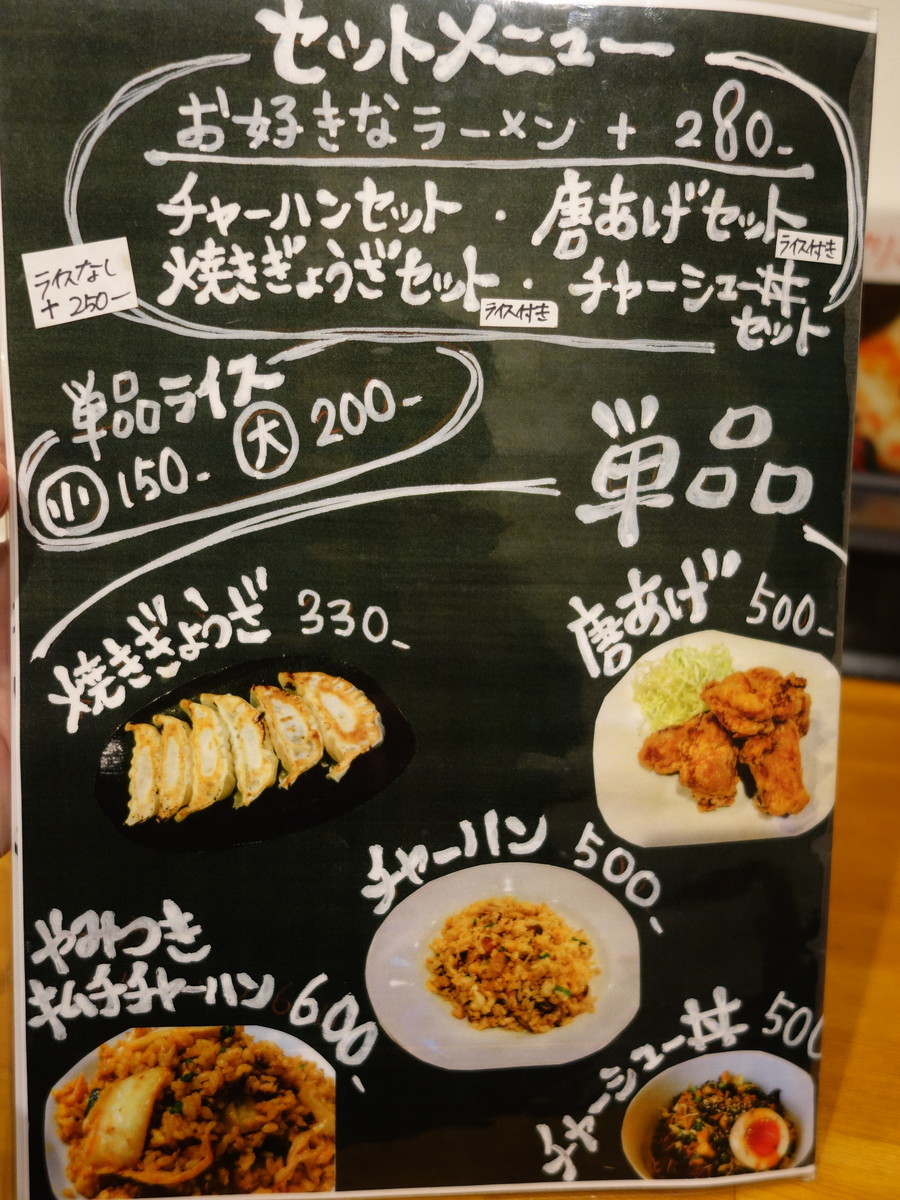 セットメニュー
お好きなラーメン + 280-
チャーハンセット ・ 唐あげセット
ライス付き
焼きぎょうざセット ・ チャーシュー丼
セット
ライス付き
ライスなし
+ 250-
単品ライス
小 150- 大 200-
単品
焼きぎょうざ 330-
唐あげ 500-
チャーハン 500-
やみつき
キムチチャーハン 600-
チャーシュー丼 500